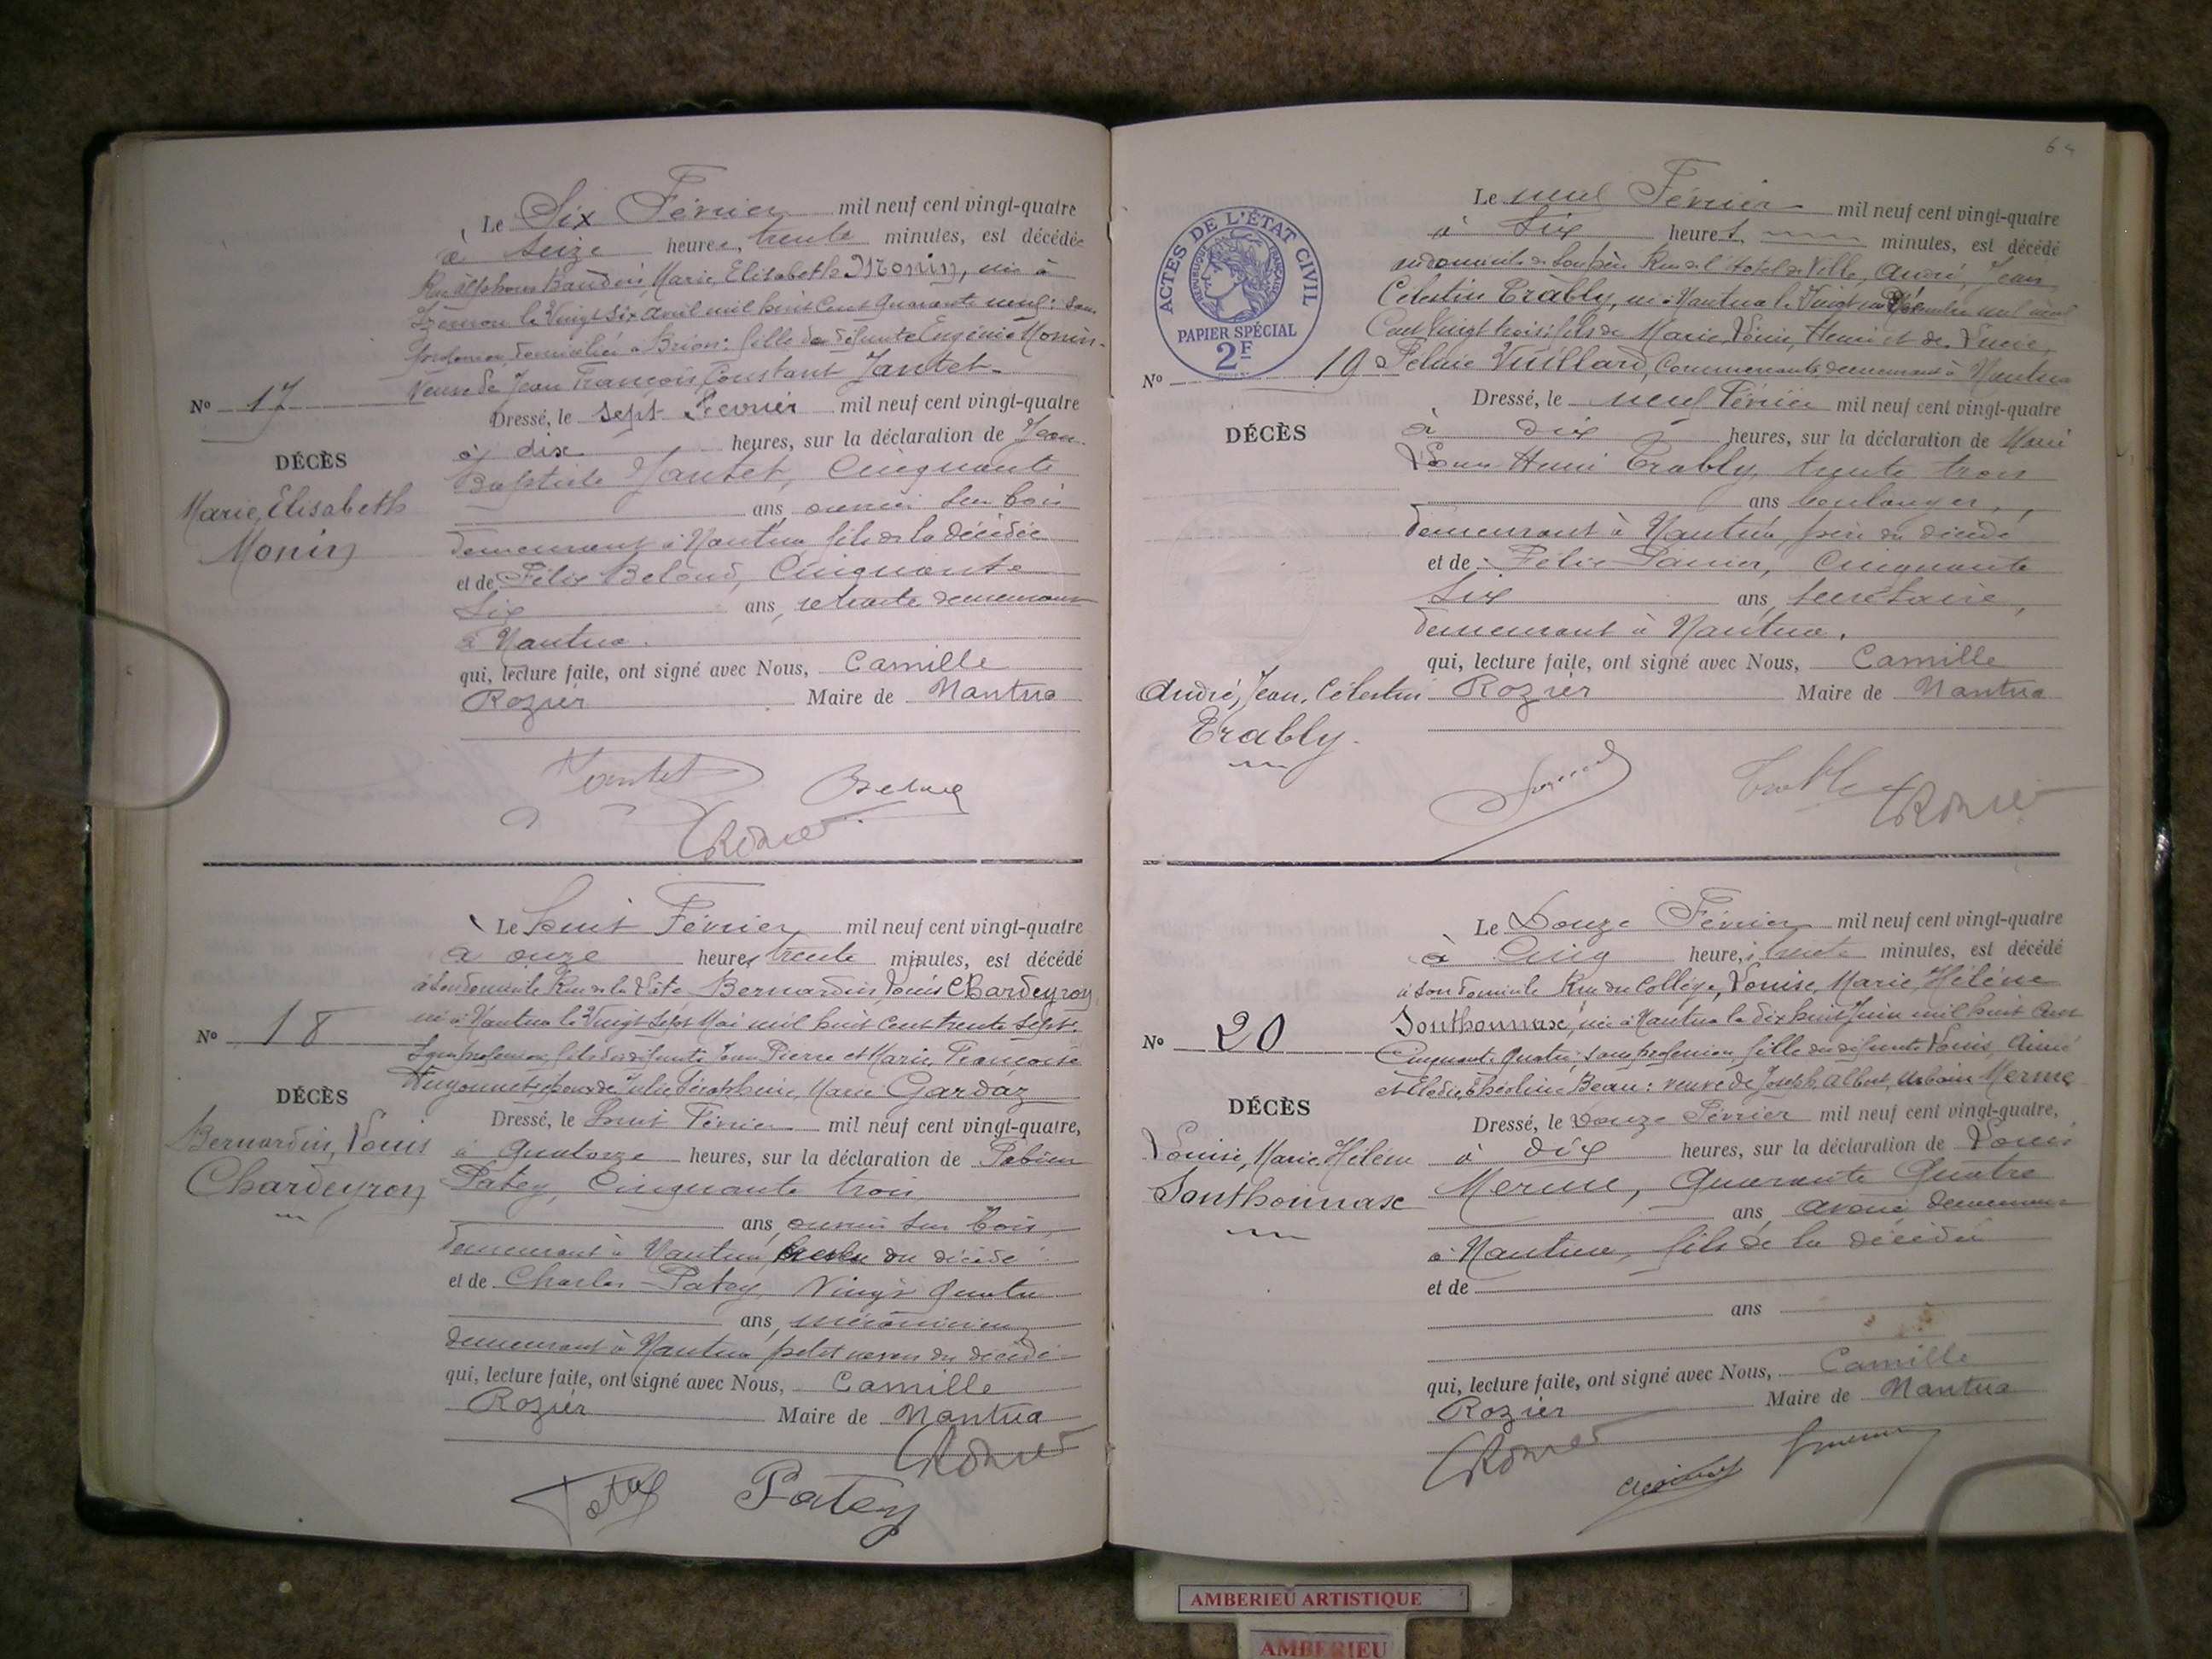 Le Six Février mil neuf cent vingt-quatre
à seize heures, trente minutes, est décédée
Rue Alphonse Baudin, Marie, Elisabeth Monin, née à
Izernore le Vingt Six avril mil huit cent quarante neuf: sans
profession domiciliée à Brion: fille de défunte Eugénie Monin.
Veuve de Jean François, Constant Jantet.
Dressé, le sept Février mil neuf cent vingt-quatre
à dix heures, sur la déclaration de Jean
Baptiste Jantet, Cinquante
ans ouvrier sur bois
demeurant à Nantua fils de la décédée
et de Félix Beloud, Cinquante
Six ans, retraité demeurant
à Nantua.
qui, lecture faite, ont signé avec Nous, Camille
Rozier Maire de Nantua
No 17
DÉCÈS
Marie, Elisabeth
Monin
Jantet
CRozier
Le huit Février mil neuf cent vingt-quatre
à onze heures trente minutes, est décédé
à son domicile Rue de la Bernardin, Louis Chardeyron,
né à Nantua le Vingt Sept Mai mil huit cent trente sept:
Sans profession, fils de défunts Jean Pierre et Marie, Françoise
époux de Julie, Séraphine, Marie Gardaz
Dressé, le huit Février mil neuf cent vingt-quatre,
à quatorze heures, sur la déclaration de Fabien
Patey, Cinquante trois
ans, ouvrier sur bois,
demeurant à Nantua neveu du décédé
et de Charles Patey, Vingt quatre
ans, mécanicien,
demeurant à Nantua petit neveu du décédé
qui, lecture faite, ont signé avec Nous, Camille
Rozier Maire de Nantua
No 18
DÉCÈS
Bernardin, Louis
Chardeyron
CRozier
Patey Patey
64
ACTES DE L'ÉTAT CIVIL
RÉPUBLIQUE FRANÇAISE
PAPIER SPÉCIAL
2F
Le neuf Février mil neuf cent vingt-quatre
à Six heures minutes, est décédé
au domicile de son père Rue de l'Hotel de Ville, André, Jean
Célestin Trably, né à Nantua le Vingt mil neuf
Cent Vingt trois: fils de Marie, Louis, Henri et de Lucie,
Pelaie Vuillard, Commerçants demeurant à Nantua
Dressé, le neuf Février mil neuf cent vingt-quatre
à dix heures, sur la déclaration de Marie
Louis Henri Trably, trente trois
ans boulanger,
demeurant à Nantua, père du décédé
et de Félix Panier, Cinquante
Six ans, secrétaire,
demeurant à Nantua.
qui, lecture faite, ont signé avec Nous, Camille
Rozier Maire de Nantua
No 19
DÉCÈS
André, Jean, Célestin
Trably
Trably CRozier
Le Douze Février mil neuf cent vingt-quatre
à Cinq heures, trente minutes, est décédé
à son domicile Rue du Collège, Louise, Marie, Hélène
Sonthonnax, née à Nantua le dix huit Juin mil huit cent
Cinquante quatre; sans profession, fille de défunts Louis, Aimé
et Elodie, Beau: veuve de Joseph, Albert, Urbain Merme
Dressé, le Douze Février mil neuf cent vingt-quatre,
à dix heures, sur la déclaration de Louis
Merme, Quarante Quatre
ans avoué demeurant
à Nantua, fils de la décédée
et de
ans
qui, lecture faite, ont signé avec Nous, Camille
Rozier Maire de Nantua
No 20
DÉCÈS
Louise, Marie Hélène
Sonthonnax
CRozier
AMBERIEU ARTISTIQUE
AMBERIEU